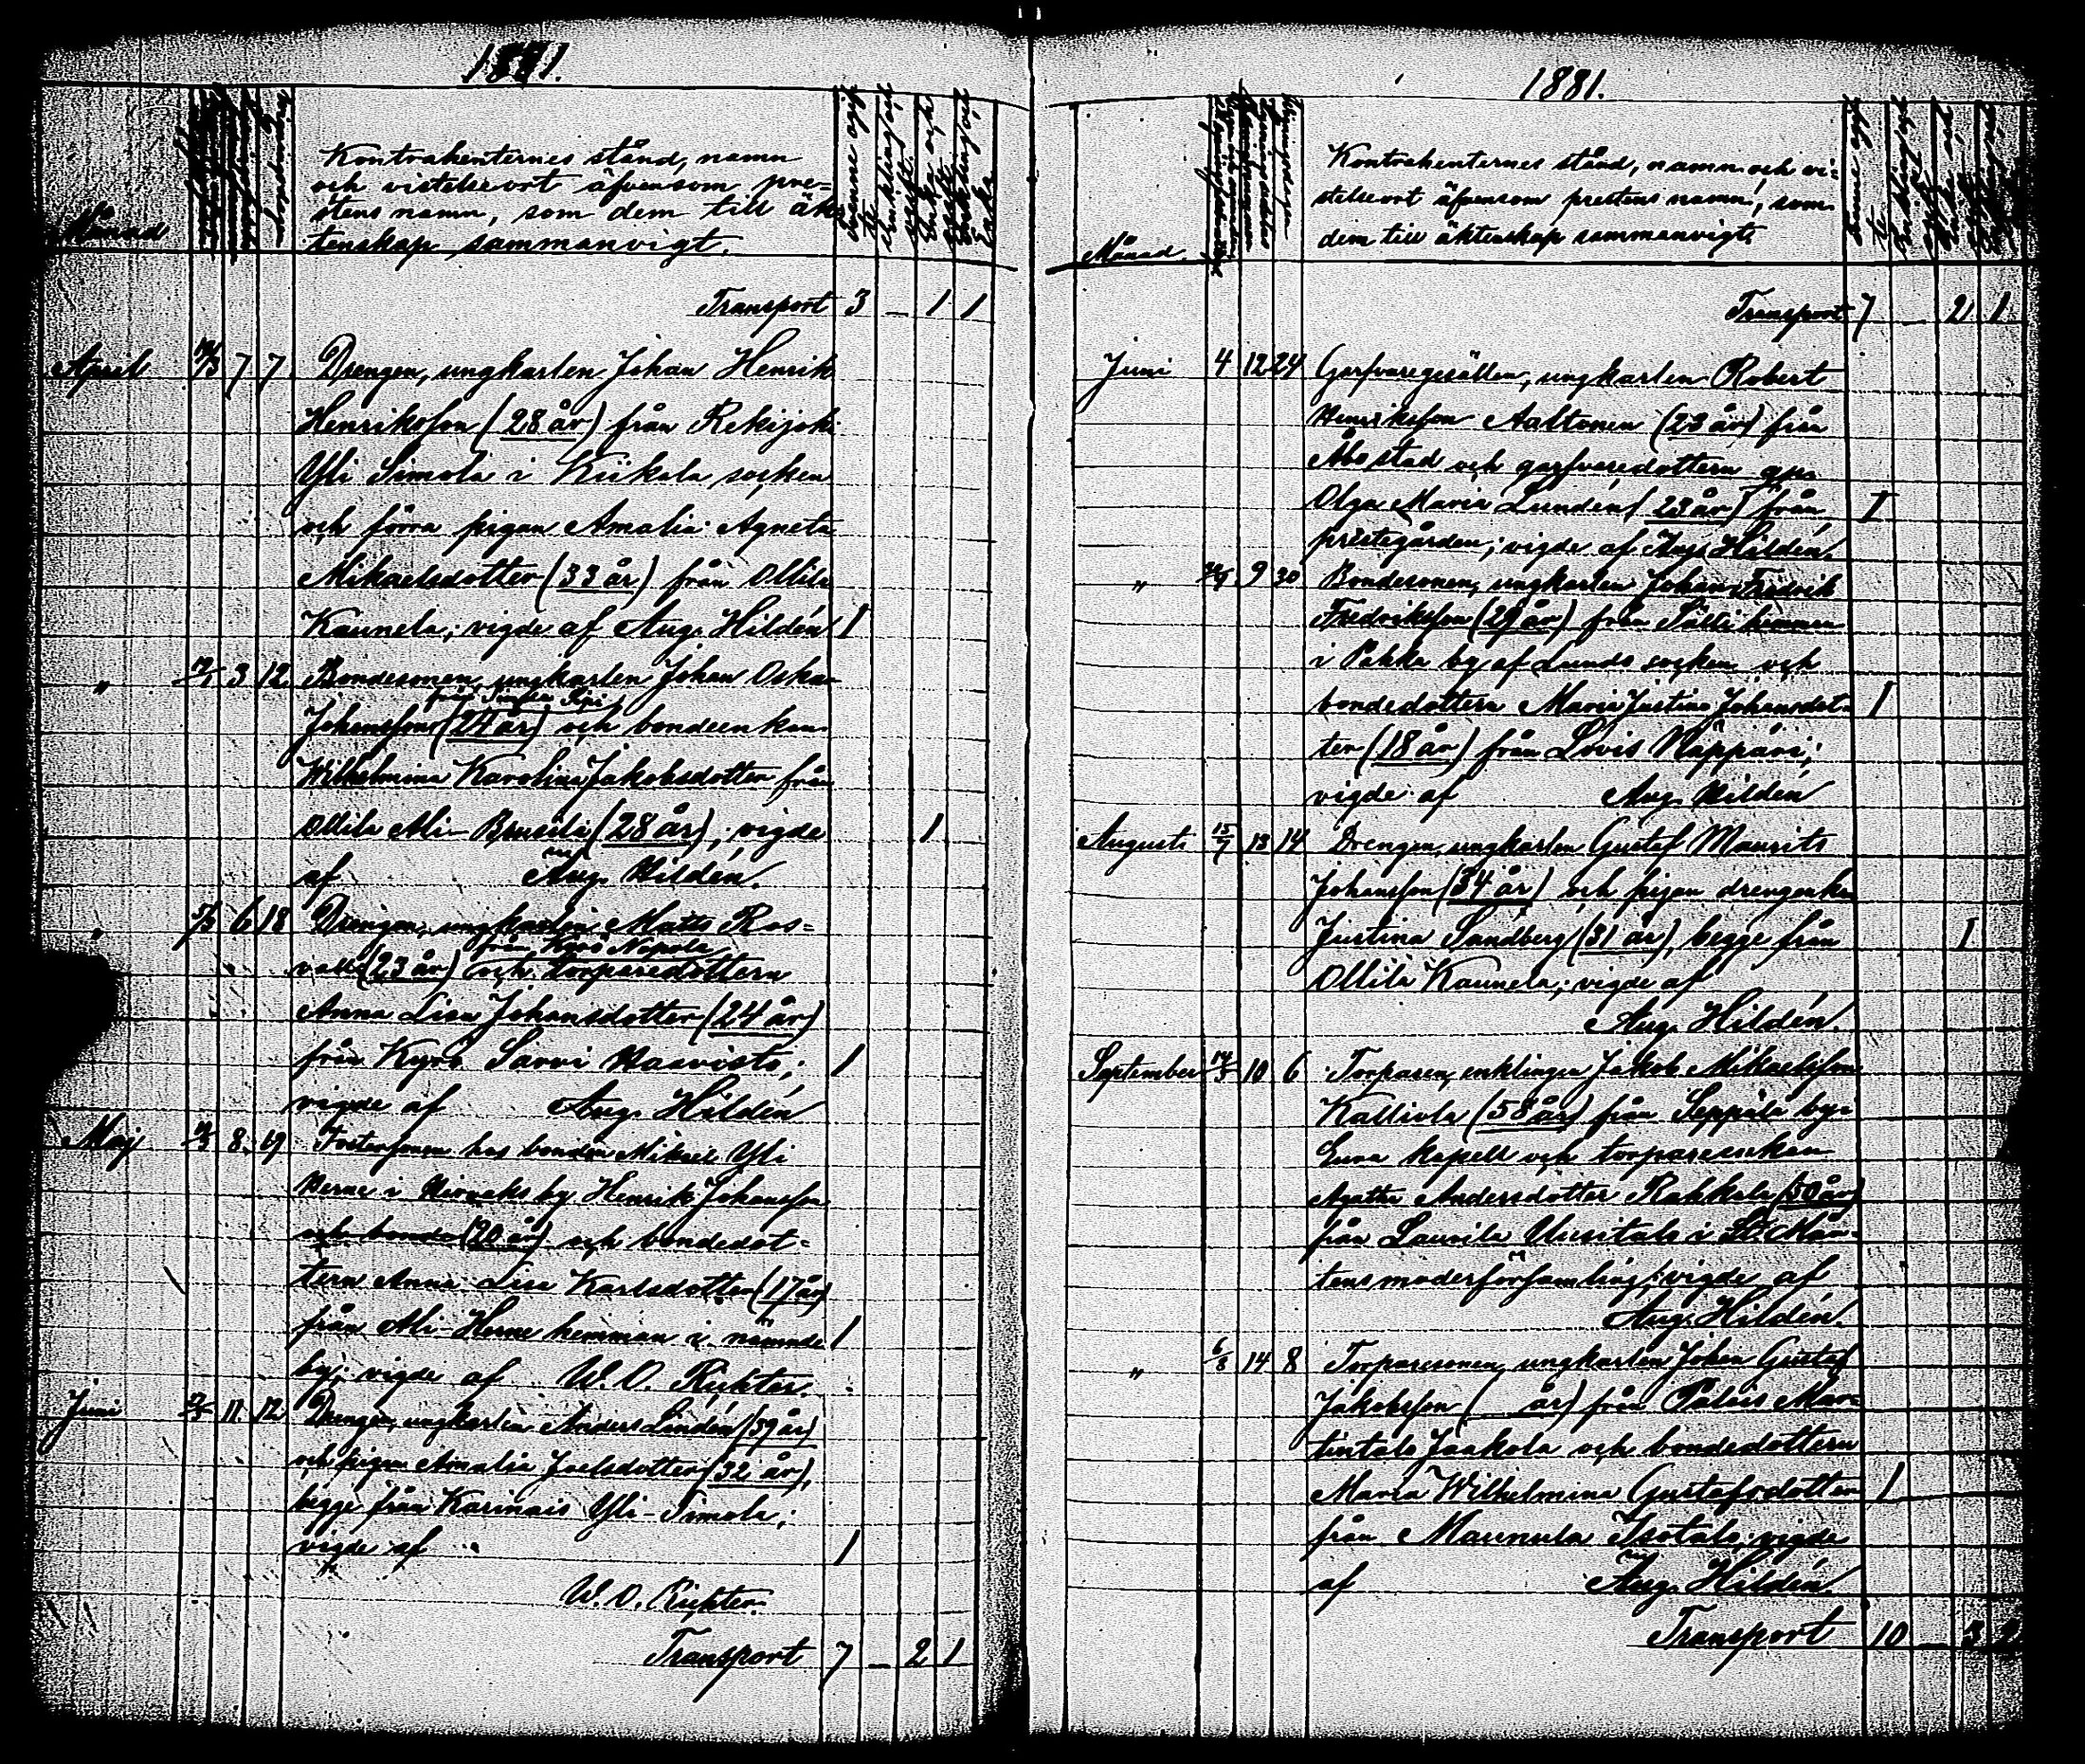 1881.
Månad
Kontrahenternes stånd, namn
och vistelseort äfvensom pre-
stens namn, som dem till äk-
tenskap sammanvigt.
Transport 3 — 1 1
April 7 7 Drengen, ungkarlen Johan Henrik
Henriksson (28 år) från Rekijoki
Yli Simola i Kiikala socken
och förra pigan Amalia Agneta
Mikaelsdotter (33 år) från Ollila
Kaunela; vigde af Aug. Hildén 1
" 3 12 Bondesonen, ungkarlen Johan Oskar
Johansson (24 år) och bondeenkan
Wilhelmina Karolina Jakobsdotter från
Ollila Ali- (28 år); vigde 1
af Aug. Hildén.
" 6 18 Drengen, ungkarlen Matts Ros-
från Kyrö Nopola
vall (23 år) och torparedottern
Anna Lisa Johansdotter (24 år)
från Kyrö Sarvi Haavisto; 1
vigde af Aug. Hildén
Maj 8 19 Fostersonen hos bonden Mikael Yli
Herne i by Henrik Johansson
och bonde (20 år) och bondedot-
tern Anna Lisa Karlsdotter (17 år)
från Ali-Herne hemman i nämnde 1
by; vigde af W. O. Richter.
Juni 11 12 Drengen, ungkarlen Anders Lindén (39 år)
och pigan Amalia Joelsdotter (32 år),
begge från Karinais Yli-Simola;
vigde af 1
W. O. Richter.
Transport 7 — 2 1
1881.
Månad
Kontrahenternes stånd, namn och vi-
stelseort äfvensom prestens namn, som
dem till äktenskap sammanvigt.
Transport 7 — 2 1
Juni 4 12 24 Garfvaregesällen, ungkarlen Robert
Henriksson Aaltonen (23 år) från
Åbo stad och garfveredottern
Olga Maria Lundén (23 år) från 1
prestegården; vigde af Aug. Hildén.
" 9 30 Bondesonen, ungkarlen Johan Fredrik
Fredriksson (29 år) från Sälli hemman
i Pahka by af Lundo socken och
bondedottern Maria Justina Johansdot- 1
ter (18 år) från Lovis Näppäri;
vigde af Aug. Hildén
Augusti 15/7 13 14 Drengen, ungkarlen Gustaf Maurits
Johansson (34 år) och pigan drengenkan
Justina Sandberg (31 år), begge från 1
Ollila Kaunela; vigde af
Aug. Hildén.
September 10 6 Torparen, enklingen Jakob Mikaelsson
Kalliola (58 år) från Seppälä by i
Eura kapell och torpareenkan
Agatha Andersdotter Rahkala (50 år)
från Laurila Uusitalo i St. Mår-
tens moderförsamling; vigde af
Aug. Hildén.
" 6/8 14 8 Torparesonen, ungkarlen Johan Gustaf
Jakobsson ( år) från Palais Mar-
tintalo Jaakola och bondedottern
Maria Wilhelmina Gustafsdotter 1
från Maunula Isotalo; vigde
af Aug. Hildén
Transport 10 — 3 2